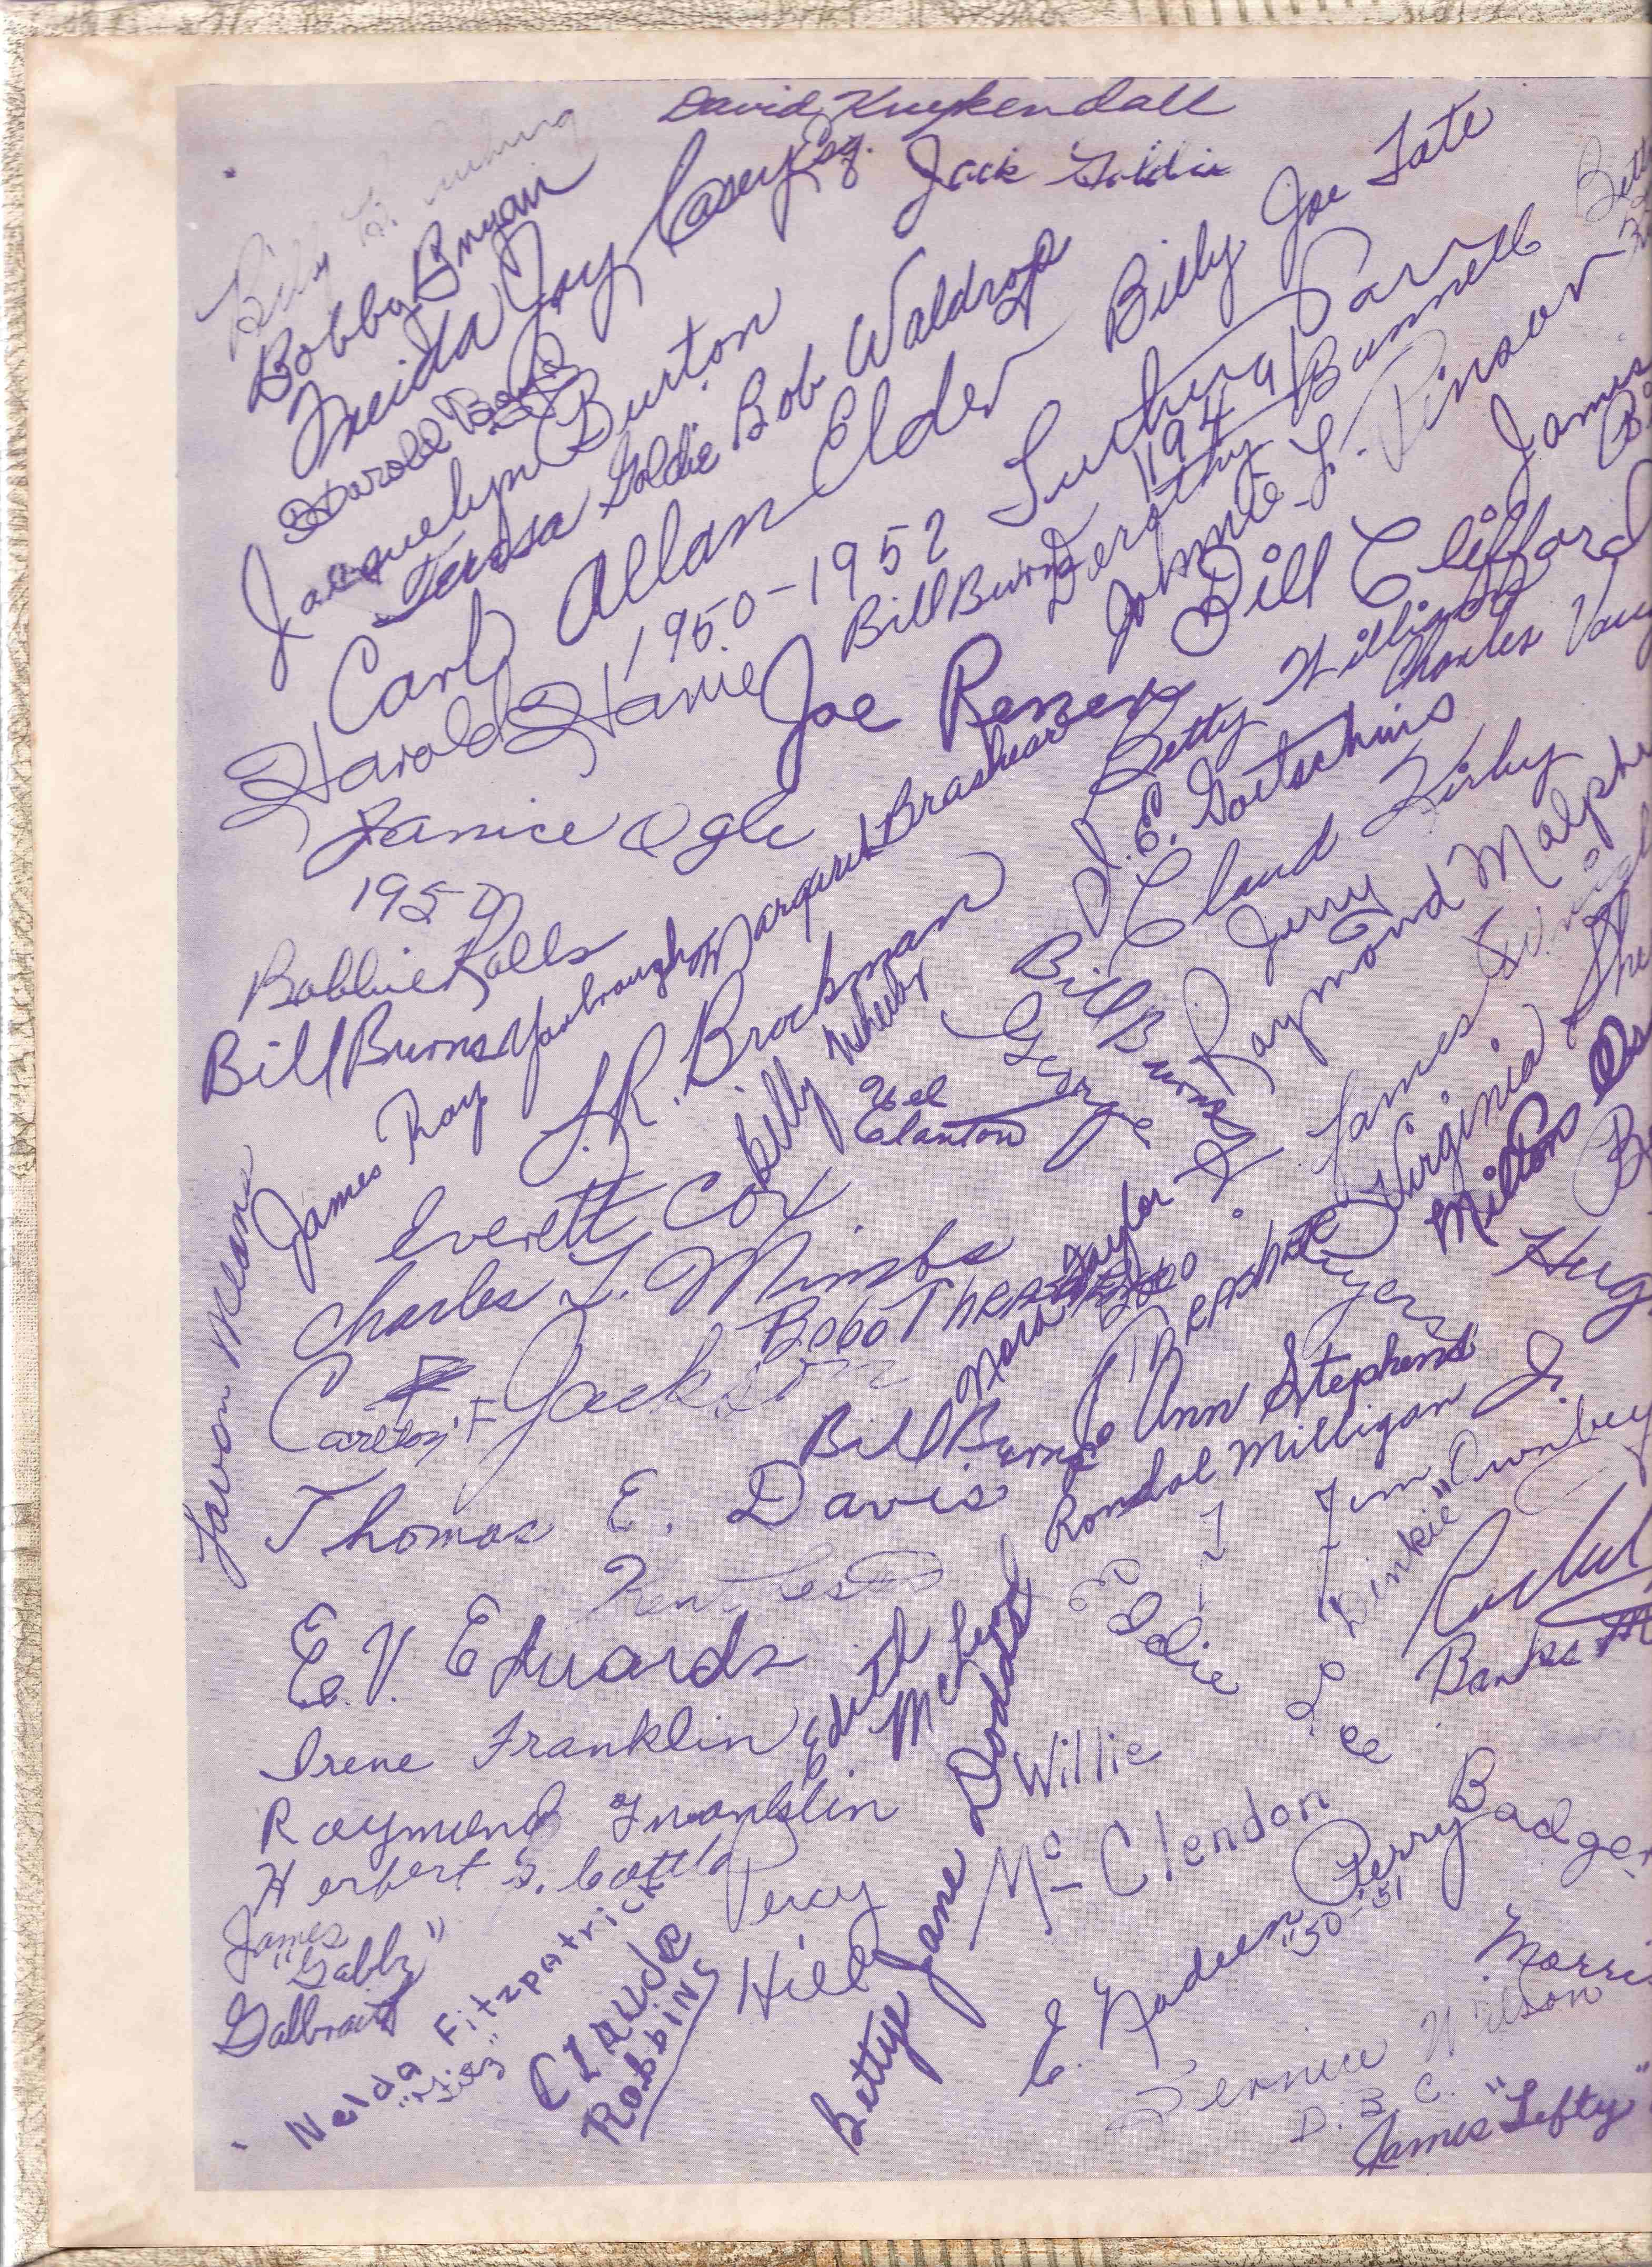 David Kuykendall
Billy
Bobby Bryan
Jack Goldie
Billy Joe Tate
Neida Joy Casey Esq.
Harold
Jacquelyn Burton
Teresa Goldie
Bob Waldrop
Carl Allan Elder
1950-1952
Luther Parr
"1949"
Bill Burns
Dorothy Bunnell
Johnnie L. Pinson
Bill Clifford
James
Harold Hanie
Joe Rener
Betty Hilliard
Charles
Janice Ogle
1950
Margaret Brashear
J. E. Goetschius
Claud Kirby
Jerry
Raymond
Bobbie Ralls
Bill Burns
James Ray Yarbrough
J.R. Brockman
Billy
Hel Clanton
George
Bill Burns
James
Virginia
Milton
Lavon Means
Everett Cox
Charles L. Mimbs
Bobo
Nora Taylor
Carlton F Jackson
Bill Burns
Ann Stephens
Rondal Milligan Jr.
Thomas E. Davis
Kent Lester
Jim
"Dinkie" Ownbey
Eddie
Lee
Banks
E.V. Edwards
Edith McLeod
Irene Franklin
Raymond Franklin
Herbert S. Cottle
Percy Hill
Bettye Jane Dodds
Willie McClendon
James "Gabby" Galbraith
Nelda Fitzpatrick
"Fitz"
Claude Robbins
E. Nadeen
Perry Badge
"50-51
Bernice Wilson
D. B. C.
James "Lefty"